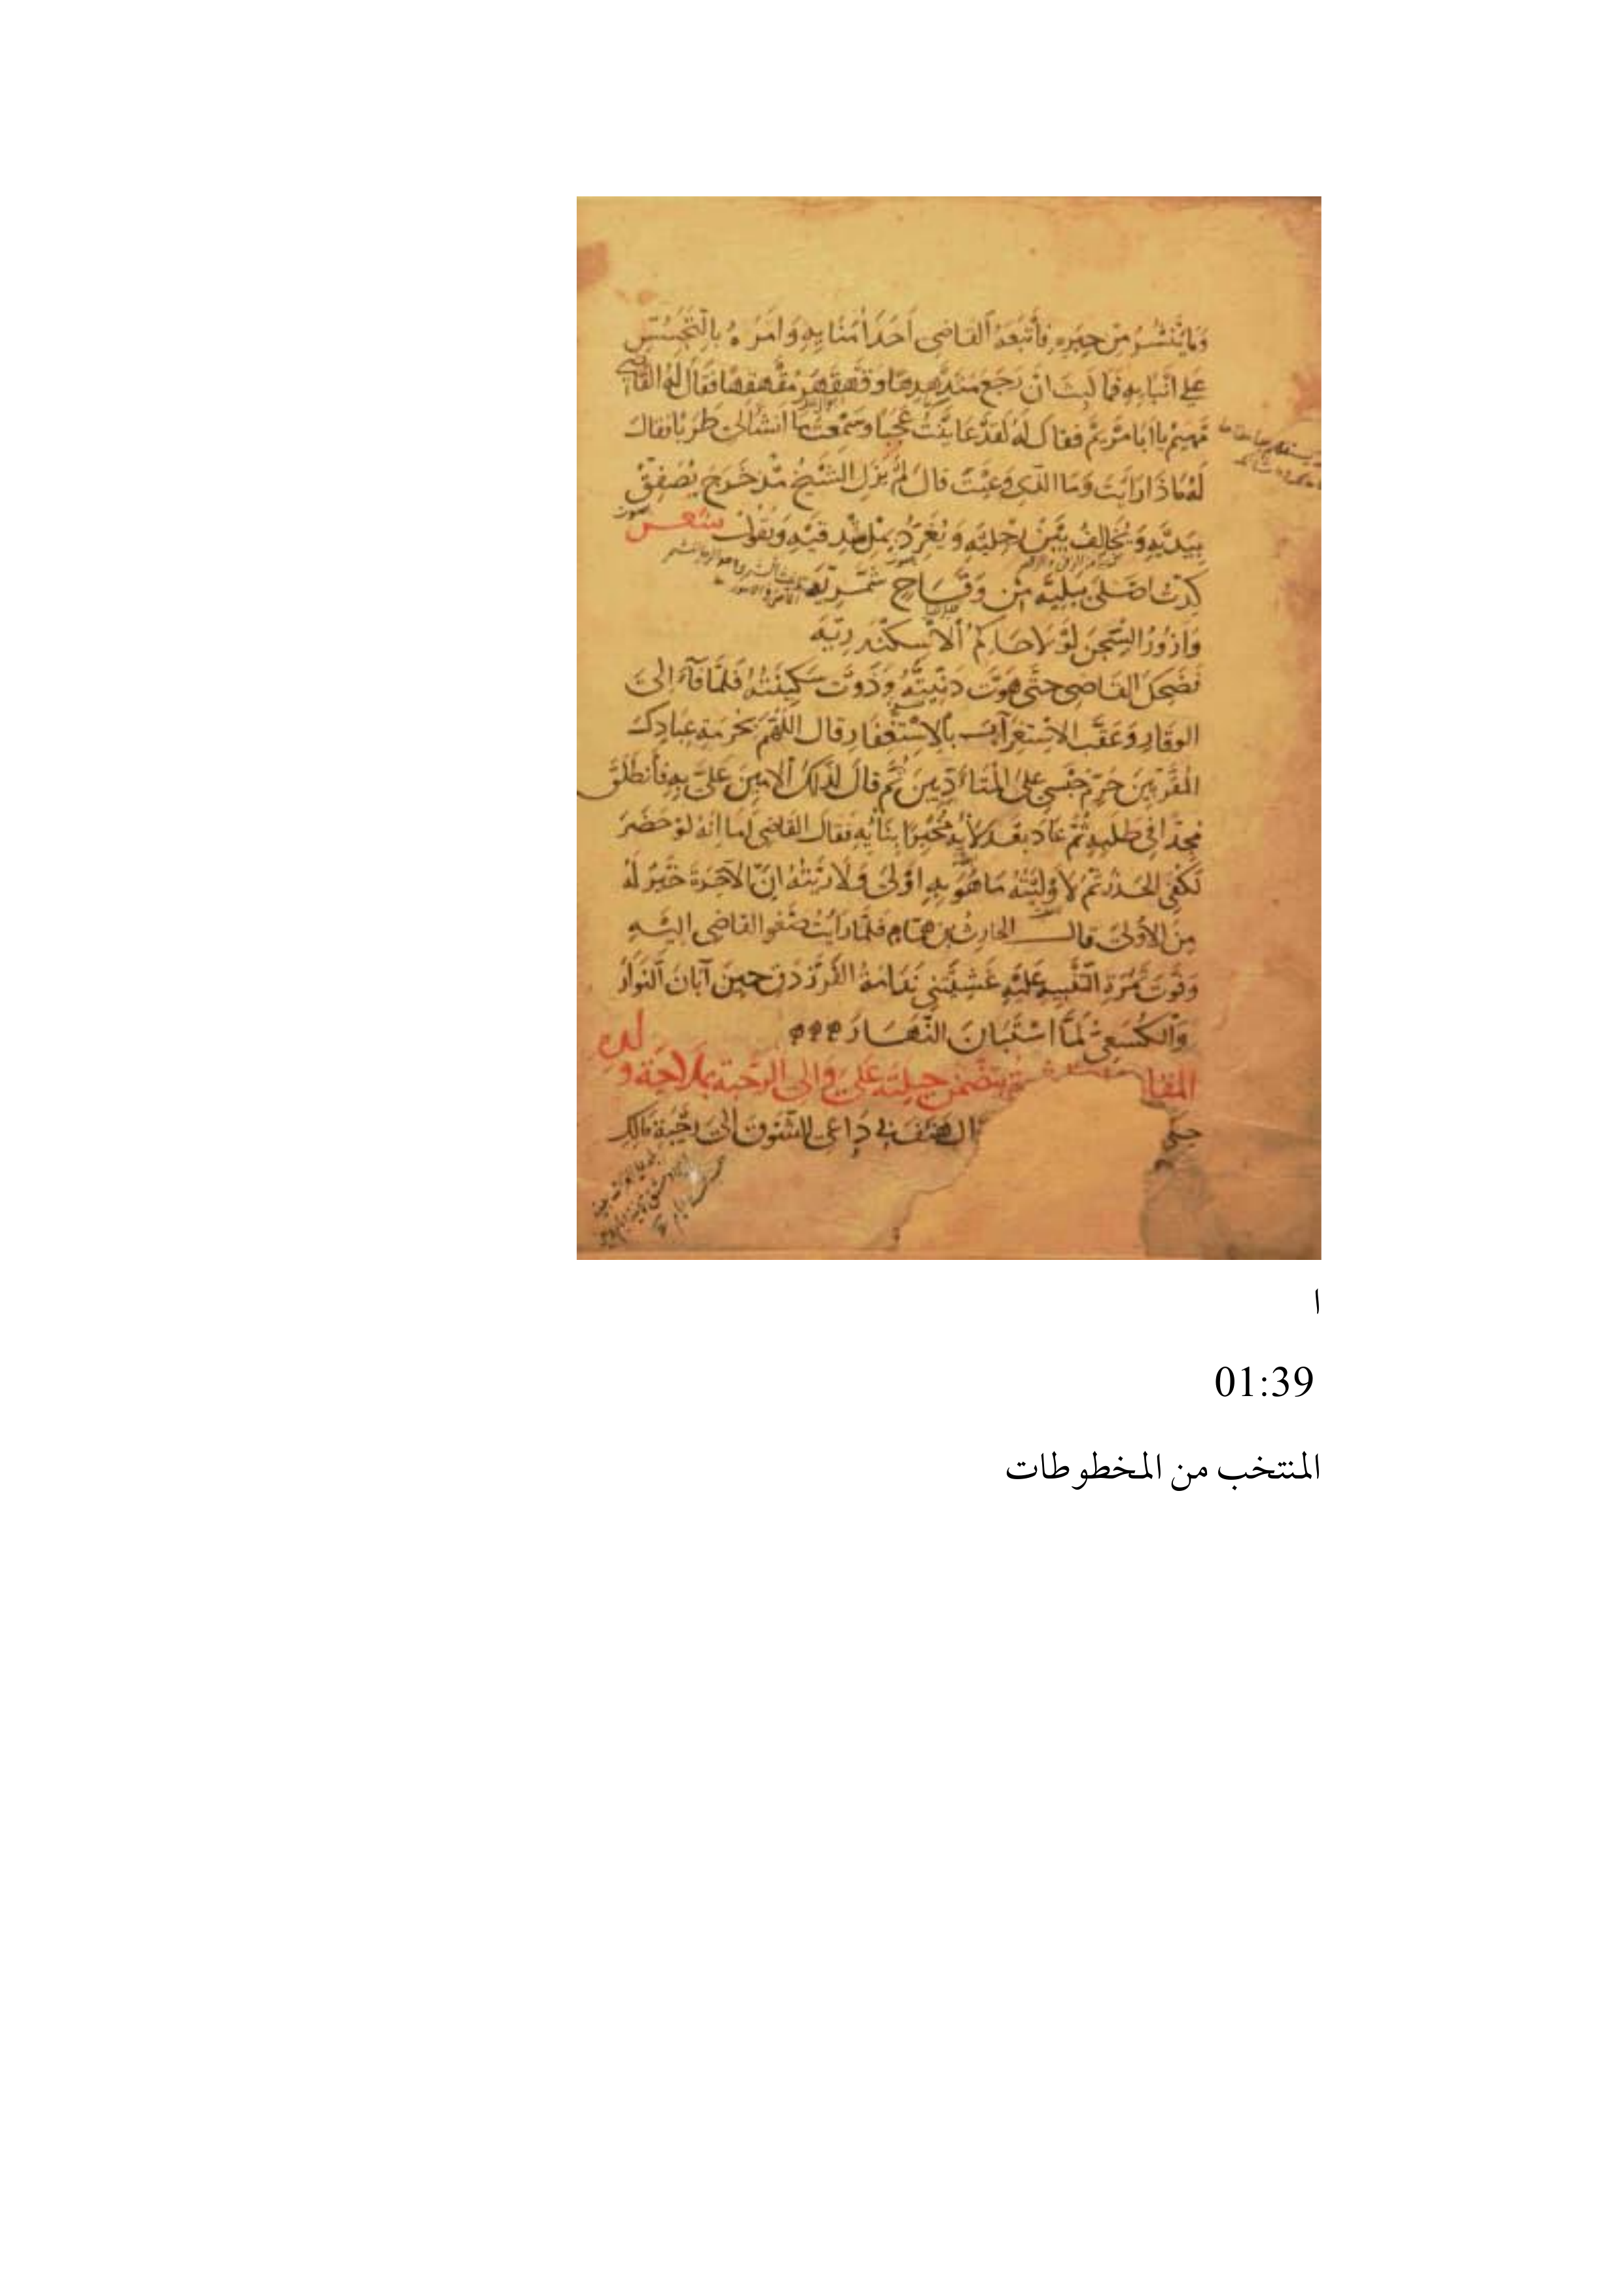 وَمَا يُنْشَرُ مِنْ حِبَرِهِ فَأَتْبَعَهُ القَاضِي أَحَدَ أُمَنَائِهِ وَأَمَرَهُ بِالتَّجَسُّسِ
عَلى أَنْبَائِهِ فَمَا لَبِثَ انْ رَجَعَ مُتَدَهْدِهًا وَقَهْقَهَ مُقَهْقِهًا فَقَالَ لَهُ القَاضِي
مَهْيَمْ يَا أبَا مَرْيَمَ فقَالَ لَهُ لَقَدْ عَايَنْتُ عَجَبًا وسَمِعْتُ مَا أَنْشَأَ لِي طَرَبًا فقَالَ
لَهُ مَاذَا رَأَيْتَ وَمَا الذِي وَعَيْتَ قَالَ لَمْ يَزَلِ الشَّيْخُ مُذْ خَرَجَ يُصَفِّقُ
بِيَدَيْهِ وَيُخَالِفُ بَيْنَ رِجْلَيْهِ وَيُغَرِّدُ بِمِلْءِ شِدْقَيْهِ وَيَقُولُ شعر
كِدْتُ اصْلَى بِبَلِيَّه مِنْ وَقَاحٍ شَمَّرِيَّه
وَازُورُ السِّجْنَ لَوْلَا حَاكِمُ الْاسْكَنْدَرِيَّه
فَضَحِكَ القَاضِي حَتَّى هَوَتْ دَنِّيَّتُهُ وَذَوَتْ سَكِينَتُهُ فَلَمَّا فَآءَ إِلَى
الوَقَارِ وَعَقَّبَ الاسْتِغْرَابَ بِالاسْتِغْفَارِ قَالَ اللَّهُمَّ بِحُرْمَةِ عِبَادِكَ
المُقَرَّبِينَ حَرِّمْ حَبْسِي عَلَى المُتَأَدِّبِينَ ثُمَّ قَالَ لِذَلِكَ الأَمِينِ عَلَيَّ بِهِ فَانْطَلَقَ
مُجِدًّا فِي طَلَبِهِ ثُمَّ عَادَ بَعْدَ لَأْيِهِ مُخْبِرًا بِنَأْيِهِ فَقَالَ القَاضِي أَمَا إِنَّهُ لَوْ حَضَرَ
لَكُفِيَ الحَذَرَ ثُمَّ لَأَوْلَيْتُهُ مَا هُوَ بِهِ أَوْلَى وَلَأَرَيْتُهُ أَنَّ الآخِرَةَ خَيْرٌ لَهُ
مِنَ الأُولَى قَالَ الحَارِثُ بْنُ هَمَّامٍ فَلَمَّا رَأَيْتُ صَغْوَ القَاضِي إِلَيْهِ
وَفَوْتَ ثَمَرَةِ التَّنْبِيهِ عَلَيْهِ غَشِيَتْنِي نَدَامَةُ الفَرَزْدَقِ حِينَ أَبَانَ النَّوَارَ
وَالكُسَعِيِّ لَمَّا اسْتَبَانَ النَّهَارَ
المقا تتضمن حيلته على والى الرحبة بملاحة و
حكى ال هتف بي دَاعِي الشَّوْقِ إِلَى رَحْبَةِ مَالِكِ
ا
01:39
المنتخب من المخطوطات